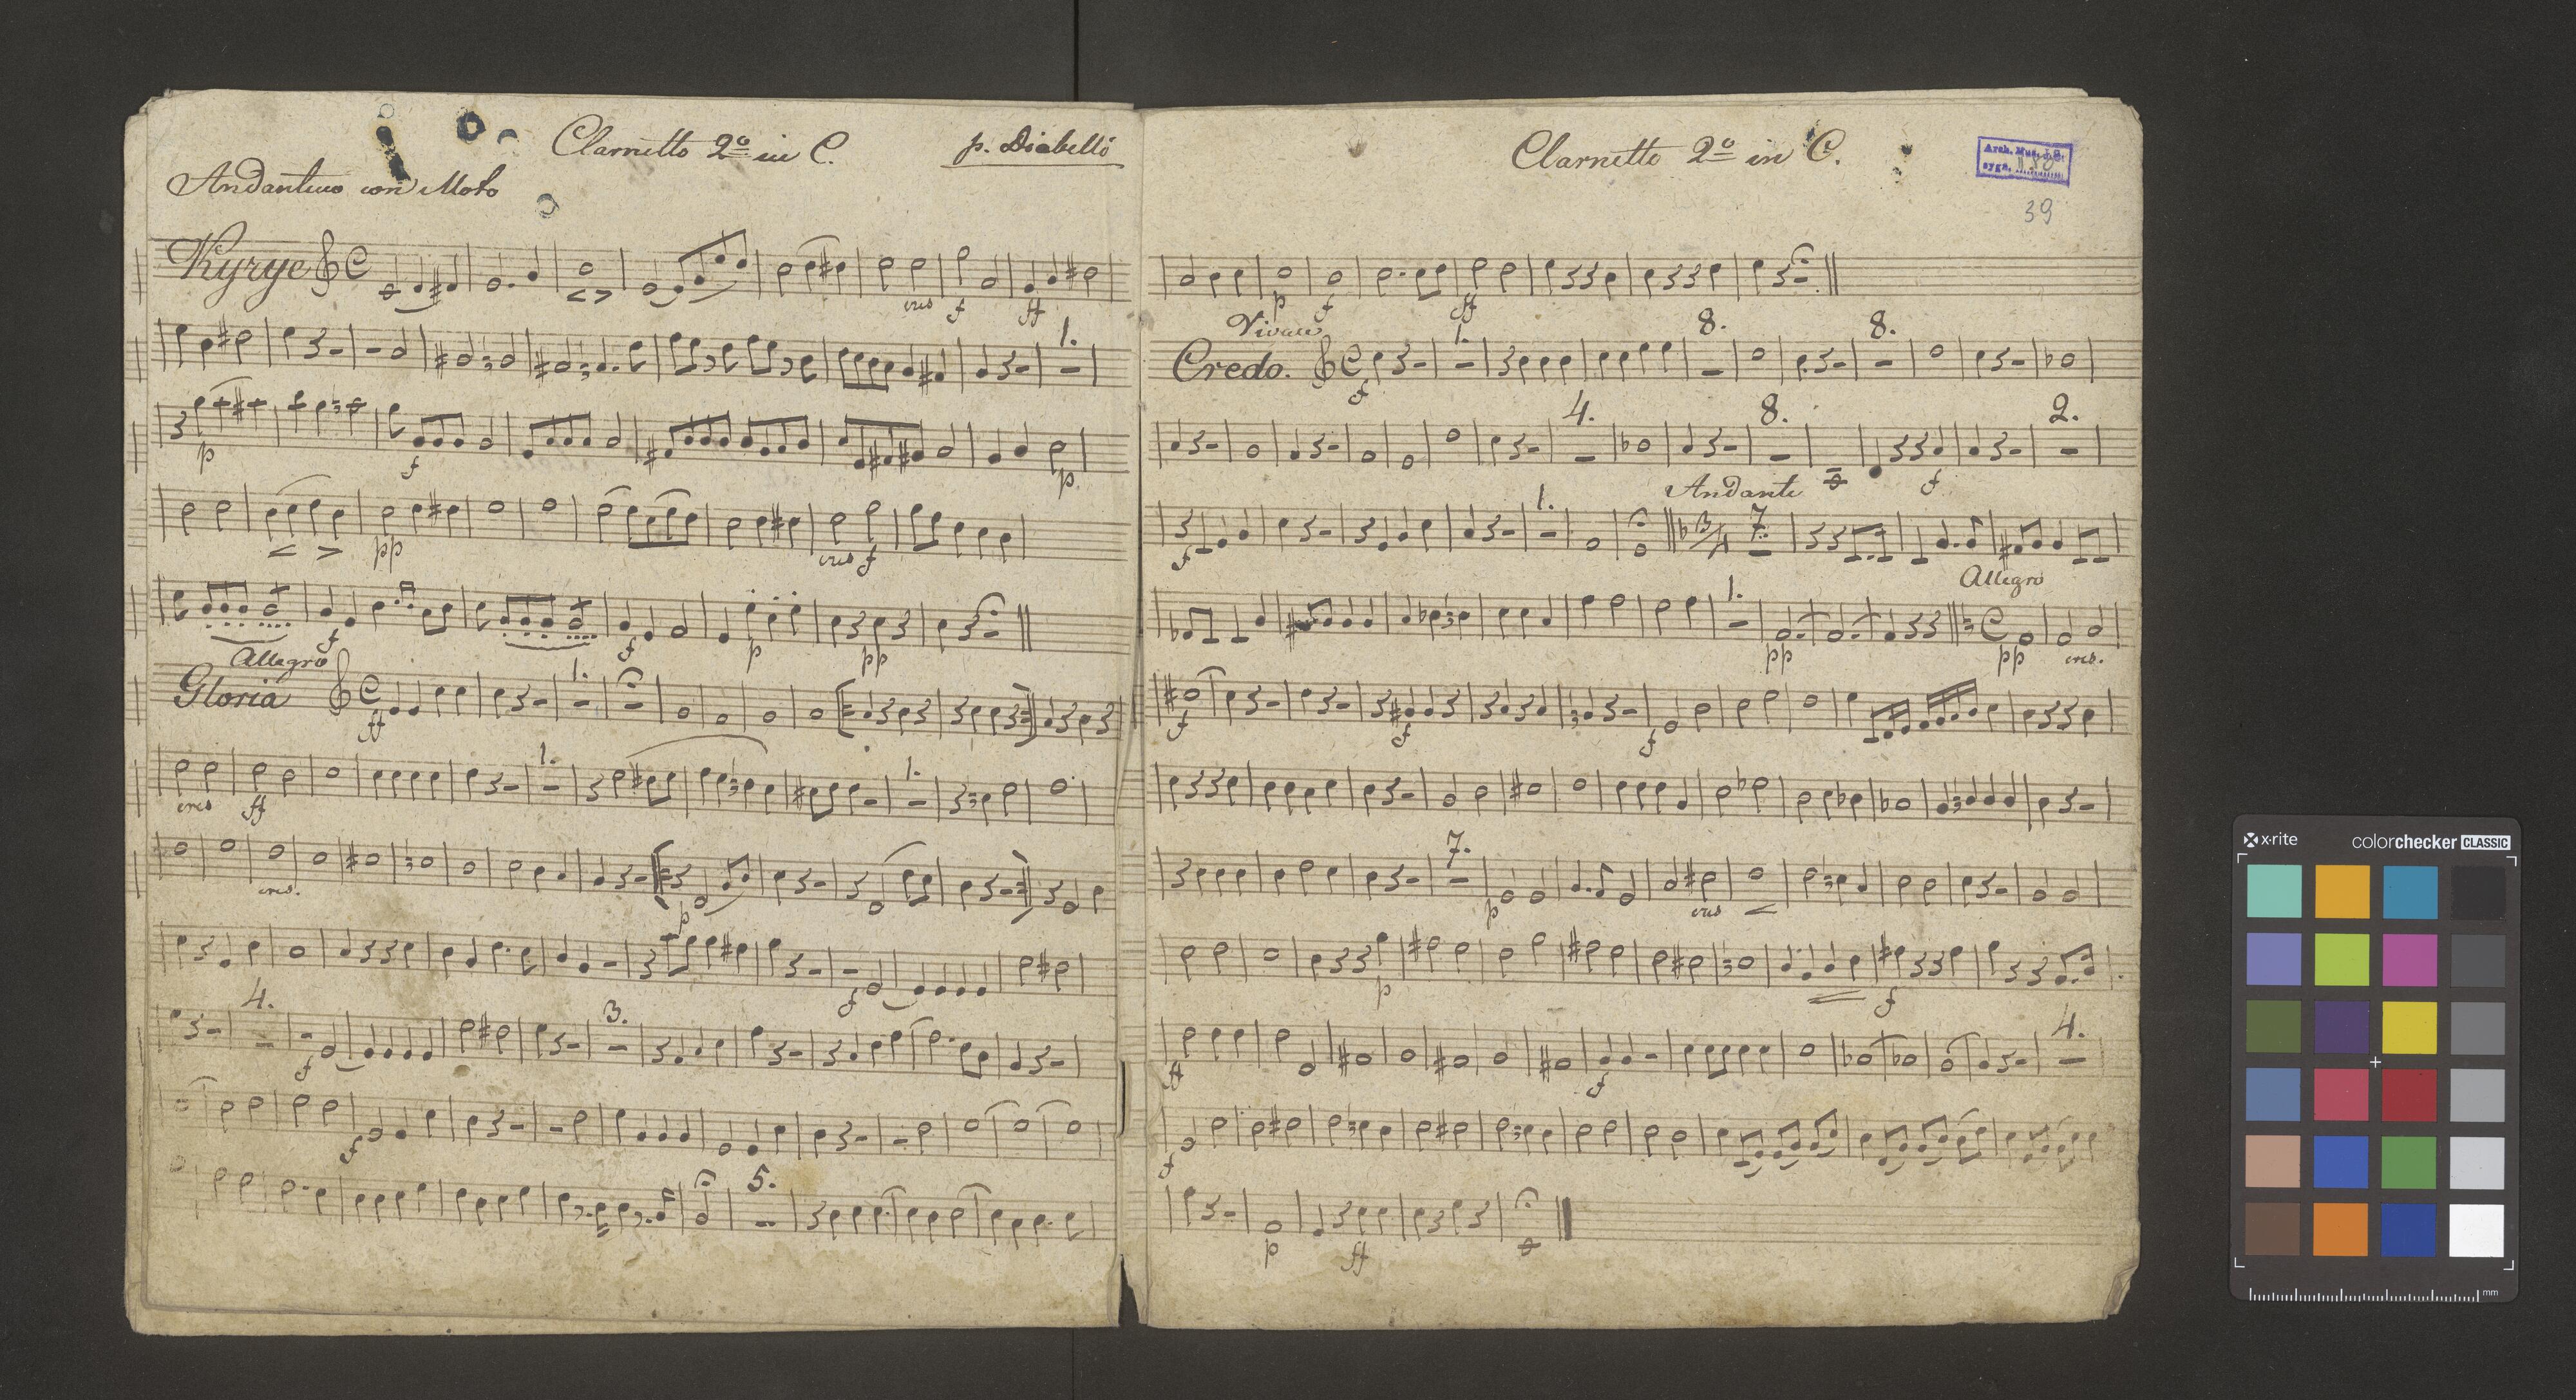 Clarnetto 2º in C.
p. Diabelli
Andantino con Moto
Kyrye
cres f ff
1.
p f p
pp cres f
f f p pp
Allegro
Gloria
ff 1.
cres ff 1. 1.
cres.
p
f
4. f 3.
f
5.
Clarnetto 2º in C.
Arch. Mus.
sygn.
39
p f ff
Vivace
Credo.
f 1. 8. 8.
4. 8. f 2.
f 1. Andante 3/4 7.
Allegro
1. pp pp cres.
f f f
7. p cres
p f
ff f 4.
f
p ff
x-rite colorchecker CLASSIC
mm